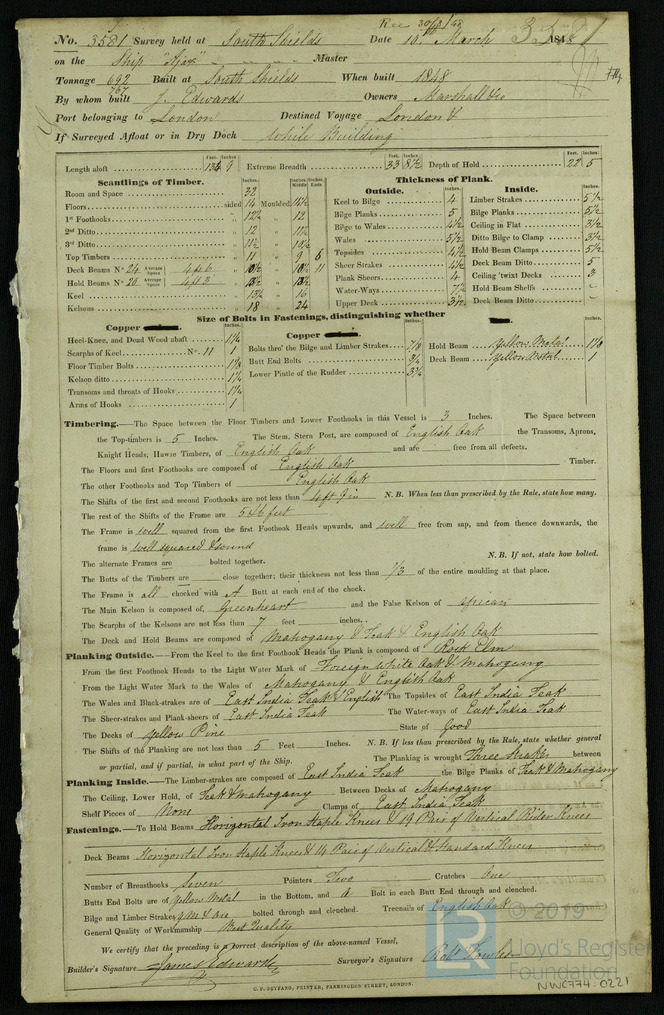 Rec 30/3/48
No. 3581 Survey held at South Shields Date 10th March 1848
on the Ship "Ajax" Master
Tonnage 692 767 Built at South Shields When built 1848
By whom built J. Edwards Owners Marshall & Co
Port belonging to London Destined Voyage London &
If Surveyed Afloat or in Dry Dock While Building
Length aloft Feet. 134 Inches. 9 Extreme Breadth Feet. 33 Inches. 8½ Depth of Hold Feet. 22 Inches. 5
Scantlings of Timber.
Room and Space 32
Floors sided 14 Moulded
1st Foothooks 12½ 12
2nd Ditto 12 11½
3rd Ditto 11½ 10½
Top Timbers 11 9 6
Deck Beams No 24 Average Space 4 ft 6 10½ 10½ 11
Hold Beams No 20 Average Space 4 ft 2 13½ 13½
Keel 13½ 16
Kelsons 18 24
Thickness of Plank.
Outside.
Keel to Bilge 4
Bilge Planks 5
Bilge to Wales 4½
Wales 5
Topsides 4½
Sheer Strakes 4½
Plank Sheers 4
Water-Ways 7½
Upper Deck 3½
Inside.
Limber Strakes 5½
Bilge Planks 5½
Ceiling in Flat 3½
Ditto Bilge to Clamp 3½
Hold Beam Clamps 5½
Deck Beam Ditto 5
Ceiling 'twixt Decks 3
Hold Beam Shelfs -
Deck Beam Ditto -
Size of Bolts in Fastenings, distinguishing whether
Copper
Heel-Knee, and Dead Wood abaft 1¼
Scarphs of Keel No. 11 1
Floor Timber Bolts 1⅛
Kelson ditto 1¼
Transoms and throats of Hooks 1¼
Arms of Hooks 1
Copper
Bolts thro' the Bilge and Limber Strakes 7/8
Butt End Bolts 3/4
Lower Pintle of the Rudder 3¼
Hold Beam Yellow Metal 1⅛
Deck Beam Yellow Metal 1
Timbering.—The Space between the Floor Timbers and Lower Foothooks in this Vessel is 3 Inches. The Space between
the Top-timbers is 5 Inches. The Stem, Stern Post, are composed of English Oak the Transoms, Aprons,
Knight Heads, Hawse Timbers, of English Oak and are free from all defects.
The Floors and first Foothooks are composed of English Oak Timber.
The other Foothooks and Top Timbers of English Oak
The Shifts of the first and second Foothooks are not less than 4 ft 9 in N. B. When less than prescribed by the Rule, state how many.
The rest of the Shifts of the Frame are 5 & 6 feet
The Frame is well squared from the first Foothook Heads upwards, and well free from sap, and from thence downwards, the
frame is well squared & sound
N. B. If not, state how bolted.
The alternate Frames are bolted together.
The Butts of the Timbers are close together; their thickness not less than 1/3 of the entire moulding at that place.
The Frame is all chocked with A Butt at each end of the chock.
The Main Kelson is composed of, Greenheart and the False Kelson of African
The Scarphs of the Kelsons are not less than 7 feet inches.
The Deck and Hold Beams are composed of Mahogany & Teak & English Oak
Planking Outside.—From the Keel to the first Foothook Heads the Plank is composed of Rock Elm
From the first Foothook Heads to the Light Water Mark of Foreign White Oak & Mahogany
From the Light Water Mark to the Wales of Mahogany & English Oak
The Wales and Black-strakes are of East India Teak & English The Topsides of East India Teak
The Sheer-strakes and Plank-sheers of East India Teak The Water-ways of East India Teak
The Decks of Yellow Pine State of Good
The Shifts of the Planking are not less than 5 Feet Inches. N. B. If less than prescribed by the Rule, state whether general
or partial, and if partial, in what part of the Ship. The Planking is wrought Three Strakes between
Planking Inside.—The Limber-strakes are composed of East India Teak the Bilge Planks of Teak & Mahogany
The Ceiling, Lower Hold, of Teak & Mahogany Between Decks of Mahogany
Shelf Pieces of None Clamps of East India Teak
Fastenings.—To Hold Beams Horizontal Iron Staple Knees & 19 Pair of Vertical Rider Knees
Deck Beams Horizontal Iron Staple Knees & 14 Pair of Vertical & Standard Knees
Number of Breasthooks Seven Pointers Two Crutches One
Butts End Bolts are of Yellow Metal in the Bottom, and A Bolt in each Butt End through and clenched.
Bilge and Limber Strakes Y.M & are bolted through and clenched. Treenails of English Oak
General Quality of Workmanship Best Quality
We certify that the preceding is a correct description of the above-named Vessel.
Builder's Signature James Edwards Surveyor's Signature Robt Fowles
C. F. SEYFANG, PRINTER, FARRINGDON STREET, LONDON.
LR © 2019
Lloyd's Register
Foundation
NWC774-0221